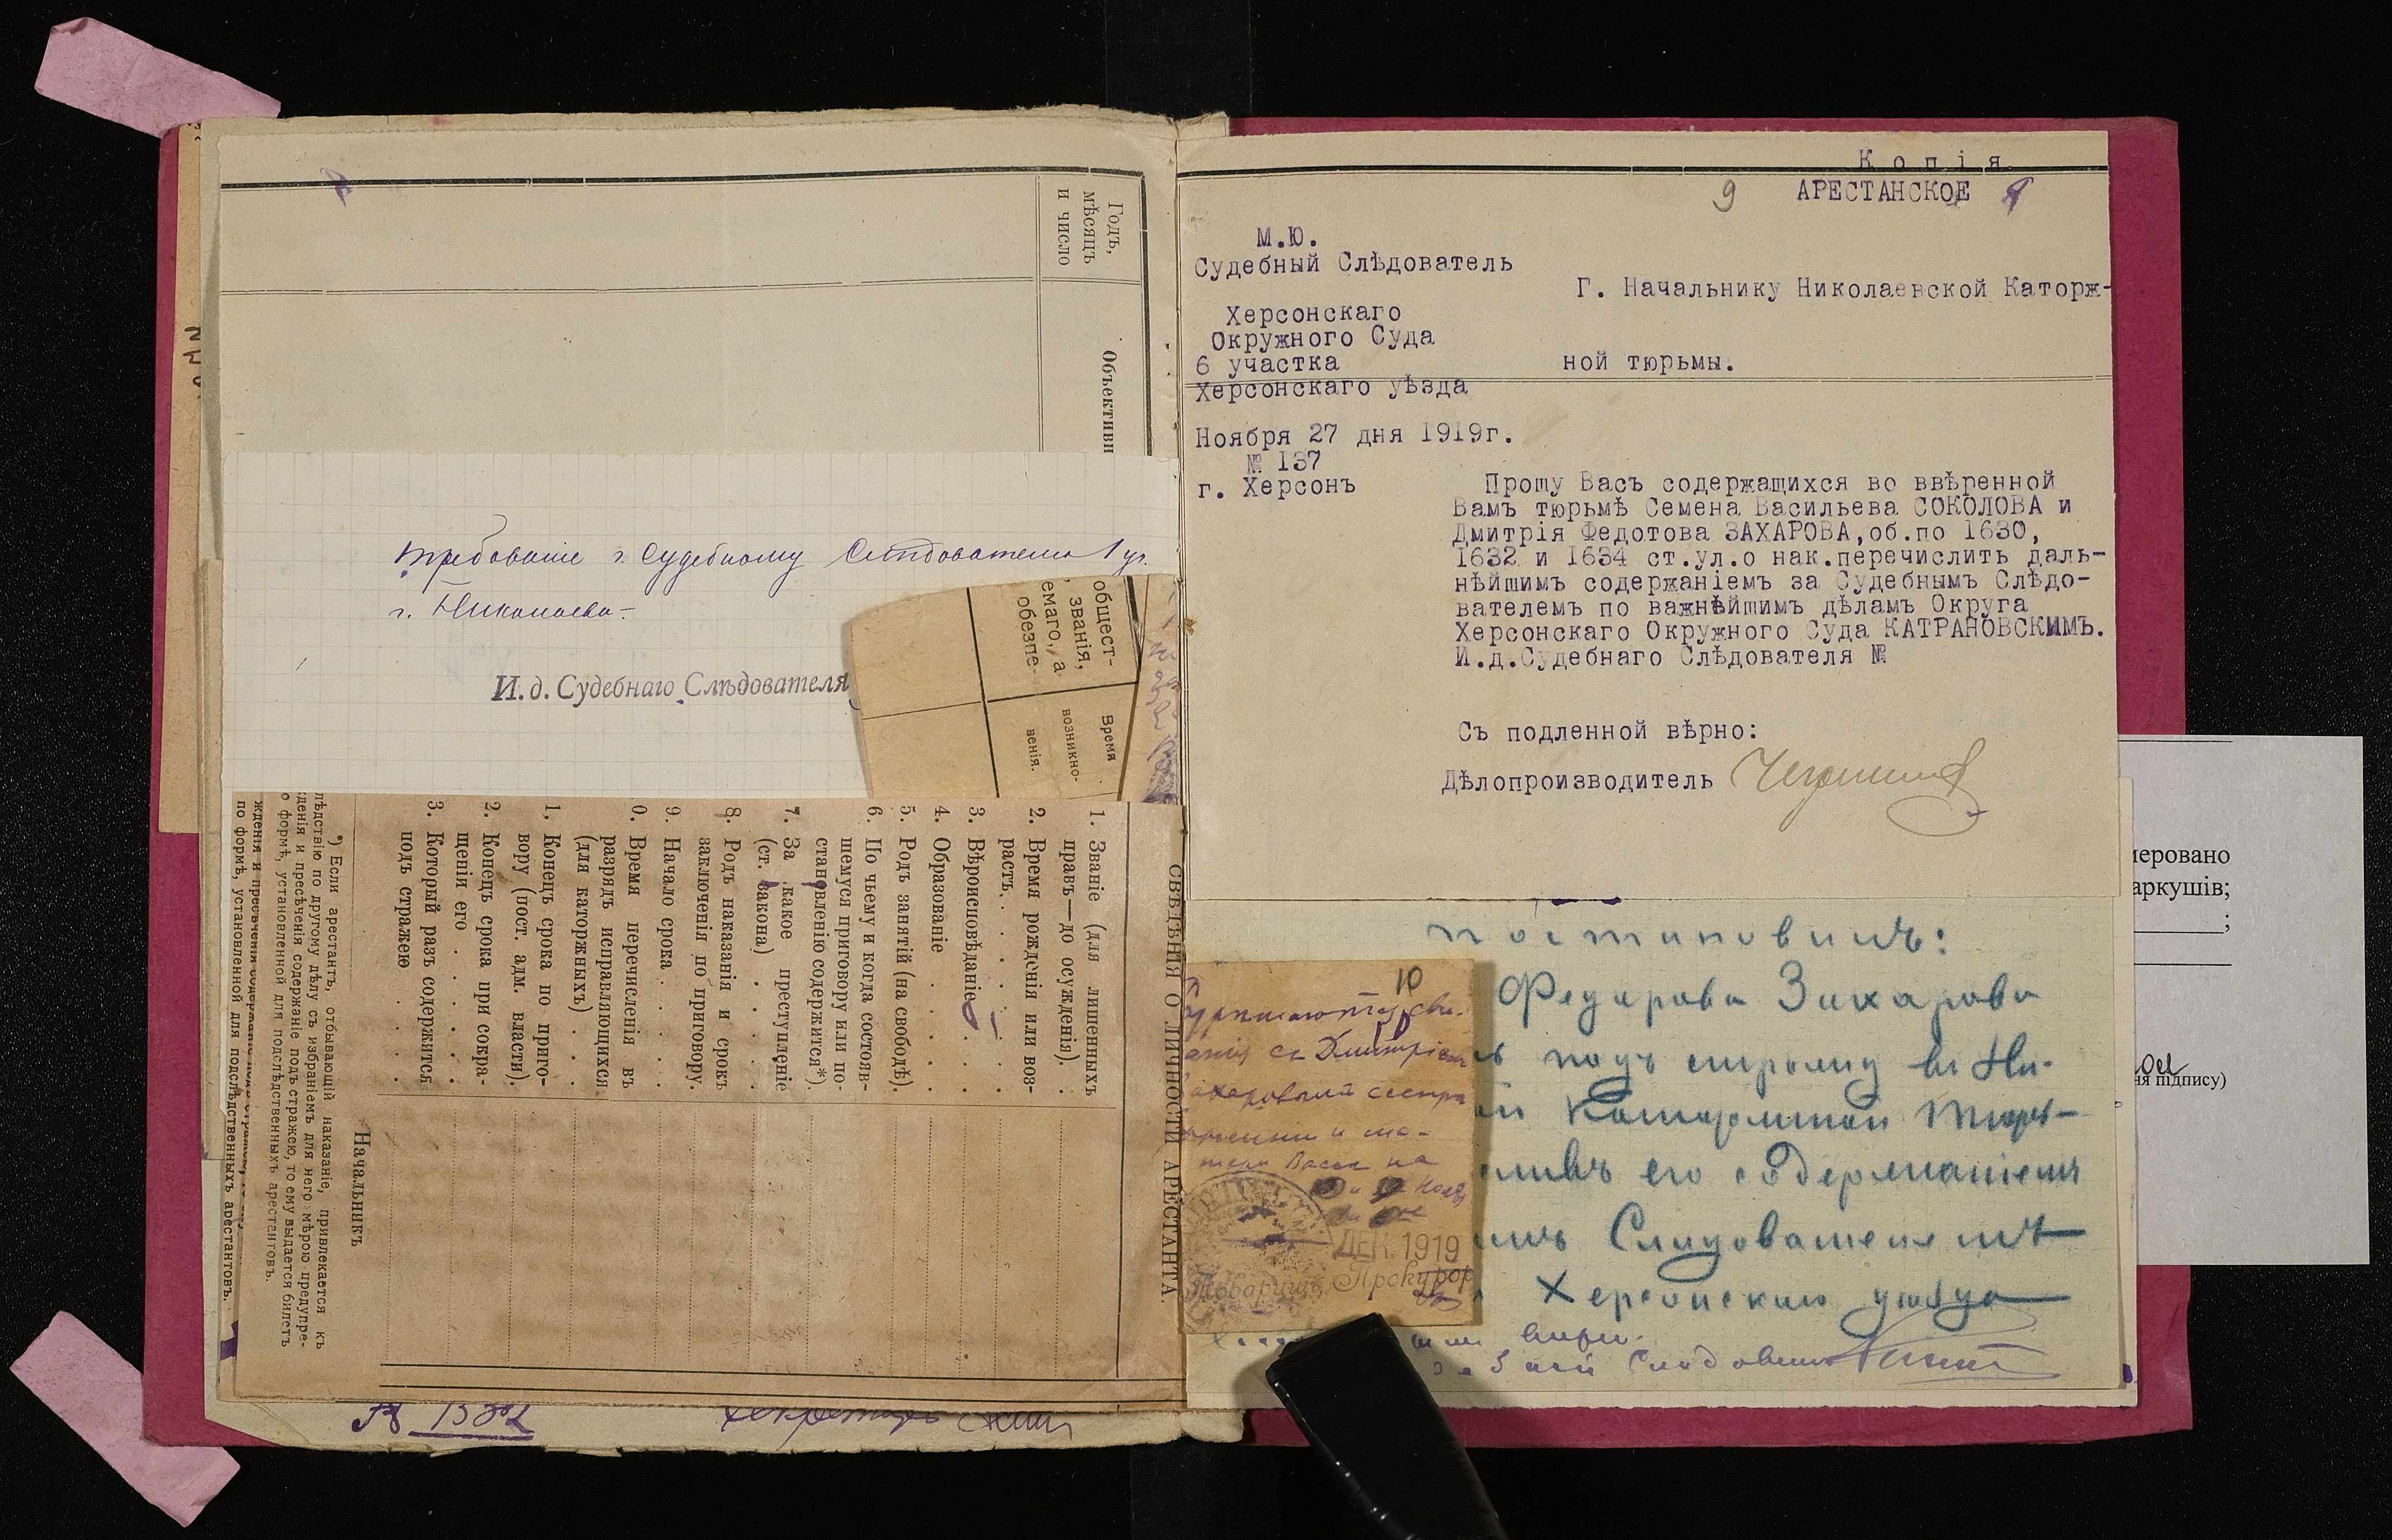 Годъ,
мѣсяцъ
и число
Объективн
требованіе г. Судебному Слѣдователю 1 уч.
г. Николаева
И. д. Судебнаго Слѣдователя
общест-
званія,
емаго, а
обезпе-
Время
возникно-
венія.
СВѢДѢНІЯ О ЛИЧНОСТИ АРЕСТАНТА.
1. Званіе (для лишенныхъ
правъ—до осужденія). .
2. Время рожденія или воз-
растъ. . . . .
3. Вѣроисповѣданіе . . .
4. Образованіе . . . .
5. Родъ занятій (на свободѣ).
6. По чьему и когда состояв-
шемуся приговору или по-
становленію содержится*).
7. За какое преступленіе
(ст. закона) . . . .
8. Родъ наказанія и срокъ
заключенія по приговору.
9. Начало срока . . . .
0. Время перечисленія въ
разрядъ исправляющихся
(для каторжныхъ) . . .
1. Конецъ срока по приго-
вору (пост. адм. власти).
2. Конецъ срока при сокра-
щеніи его . . . . .
3. Который разъ содержится
подъ стражею . . . .
Начальникъ
*) Если арестантъ, отбывающій наказаніе, привлекается къ
лѣдствію по другому дѣлу съ избраніемъ для него мѣрою предупре-
жденія и пресѣченія содержаніе подъ стражею, то ему выдается билетъ
о формѣ, установленной для подслѣдственныхъ арестантовъ.
жденія и пресѣченія
по формѣ, установленной для подслѣдственныхъ арестантовъ.
Секретарь
Копія
9 АРЕСТАНСКОЕ
М.Ю.
Судебный Слѣдователь
Г. Начальнику Николаевской Каторж-
Херсонскаго
Окружного Суда
6 участка ной тюрьмы.
Херсонскаго уѣзда
Ноября 27 дня 1919г.
№ 137
г. Херсонъ
Прошу Васъ содержащихся во ввѣренной
Вамъ тюрьмѣ Семена Васильева СОКОЛОВА и
Дмитрія Федотова ЗАХАРОВА,об.по 1630,
1632 и 1634 ст.ул.о нак.перечислить даль-
нѣйшимъ содержаніемъ за Судебнымъ Слѣдо-
вателемъ по важнѣйшимъ дѣламъ Округа
Херсонскаго Окружного Суда КАТРАНОВСКИМЪ.
И.д.Судебнаго Слѣдователя №
Съ подленной вѣрно:
Дѣлопроизводитель
постановилъ:
Федорова Захарова
подъ стражу въ Ни-
Каторжной Тюрь-
его содержаніемъ
Слидователемъ
Херсонскаго уизда
10
съ Дмитріем
сестра
и ма-
на
ДЕК. 1919
Товарищъ Прокурор
меровано
аркушів;
;
ня підпису)